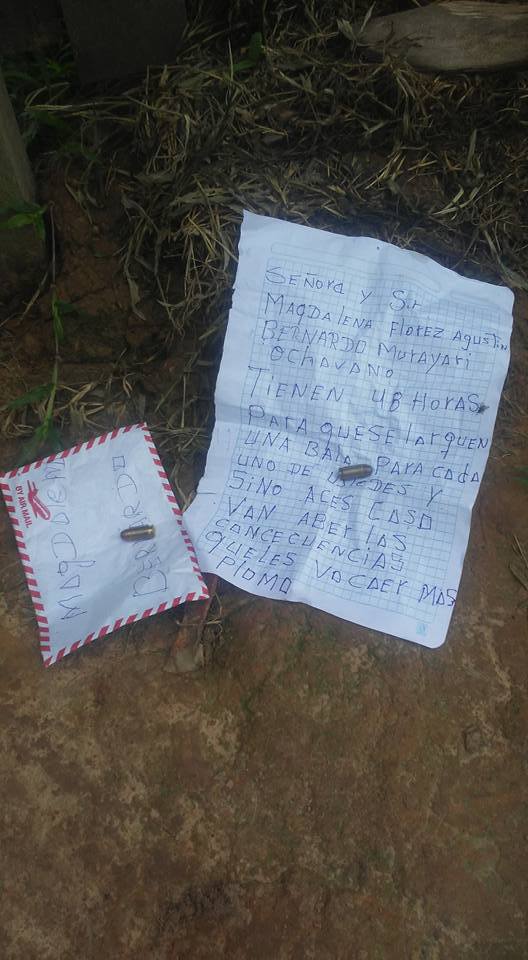 SEÑORA y Sr
MAGDALENA Florez AgusTin
BERNARDO Murayari
OCHAVANO
TIENEN 48 HORAS
PARA QUE SE larguen
UNA BALA PARA CADA
UNO DE USTEDES y
SINO ACES CASO
VAN ABER LAS
CANCECUENCIAS
QUELES VACAER MAS
PLOMO
BY AIR MAIL
BERNARDO